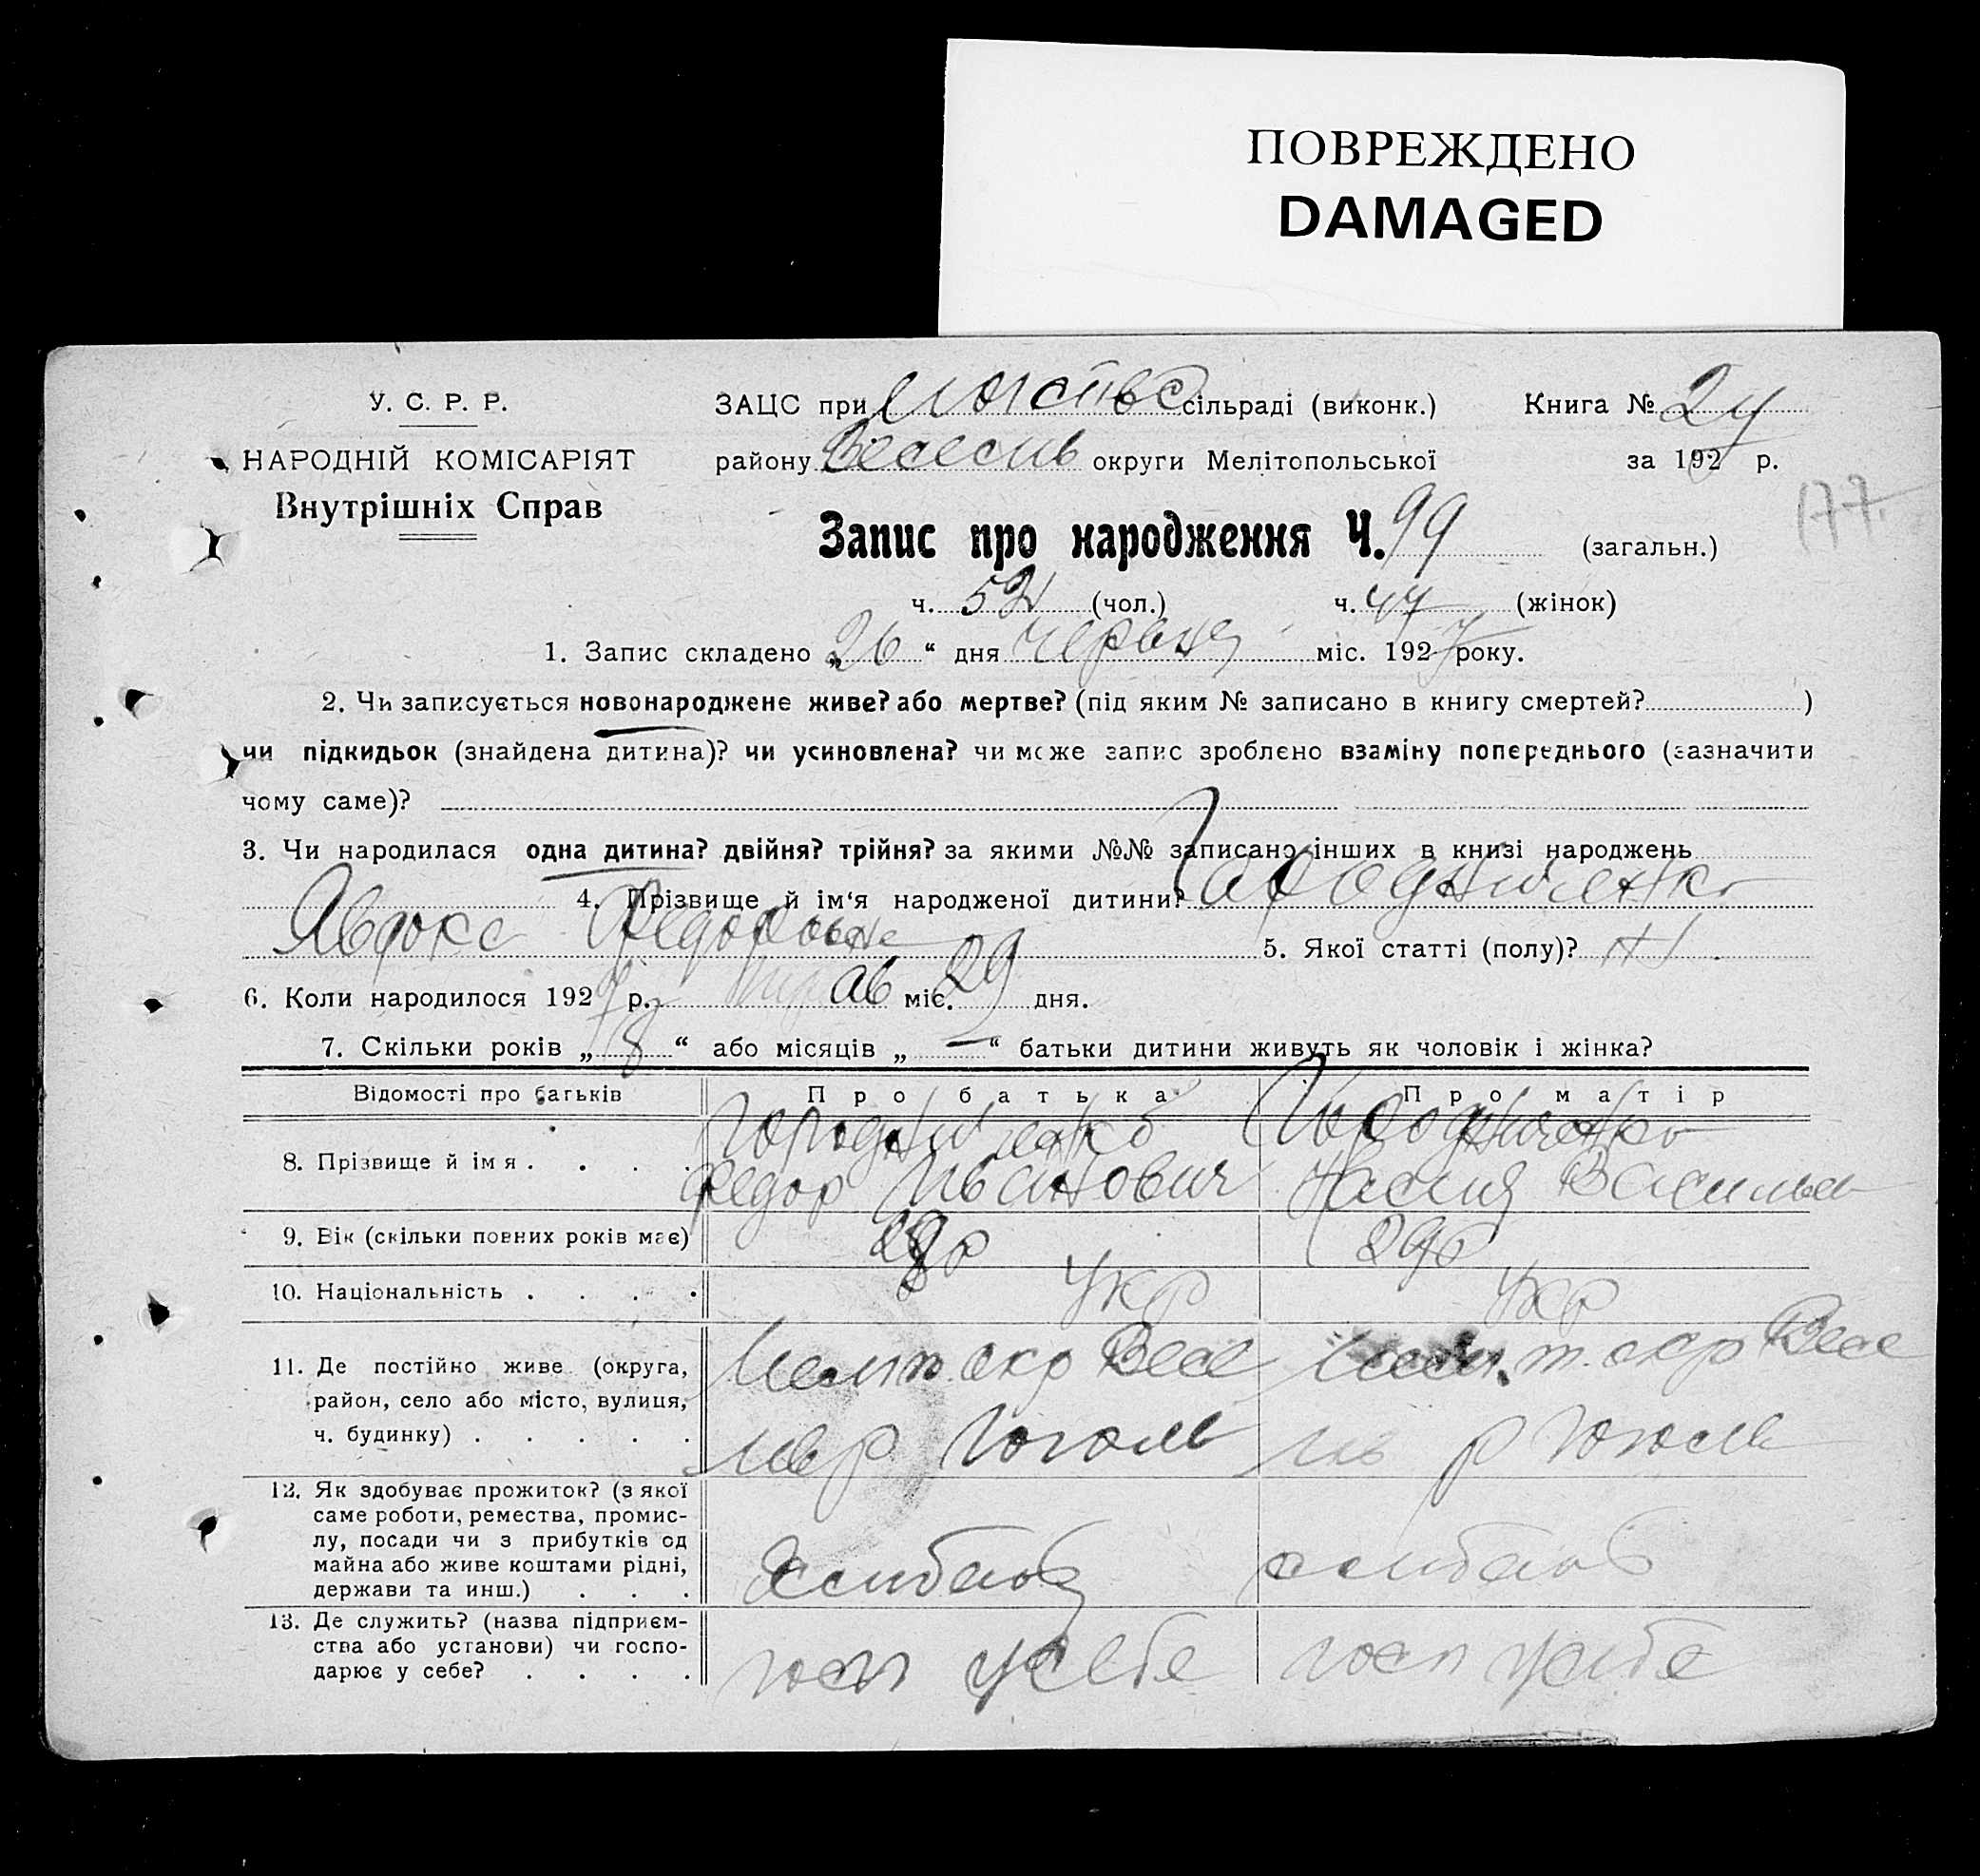 ПОВРЕЖДЕНО
DAMAGED
У. С. Р. Р.
НАРОДНІЙ КОМІСАРІЯТ
Внутрішніх Справ
ЗАЦС при сільраді (виконк.)
району округи Мелітопольської
Книга №
за 192 р.
177.
Запис про народження Ч. 99 (загальн.)
ч. 52 (чол.) ч. 47 (жінок)
1. Запис складено „26“ дня червня міс. 1927 року.
2. Чи записується новонароджене живе? або мертве? (під яким № записано в книгу смертей? )
чи підкидьок (знайдена дитина)? чи усиновлена? чи може запис зроблено взаміну попереднього (зазначити
чому саме)?
3. Чи народилася одна дитина? двійня? трійня? за якими №№ записано інших в книзі народжень
4. Прізвище й ім‘я народженої дитини? Городниченко
Федоровна 5. Якої статті (полу)? Ж
6. Коли народилося 1927 р. трав міс. 29 дня.
7. Скільки років „8“ або місяців „—“ батьки дитини живуть як чоловік і жінка?
Відомості про батьків Про батька Про матір
8. Прізвище й імя . . . . Городниченко Городниченко
Федор Иванович Василь
9. Вік (скільки повних років має) 29р
10. Національність . . . . Укр Укр
11. Де постійно живе (округа, Мелит. окр Весе окр Весе
район, село або місто, вулиця,
ч. будинку) . . . . .
12. Як здобуває прожиток? (з якої
саме роботи, ремества, промис-
лу, посади чи з прибутків од
майна або живе коштами рідні,
держави та инш.) . . .
13. Де служить? (назва підприєм-
ства або установи) чи госпо-
дарює у себе? . . . . госп у себе госп у себе